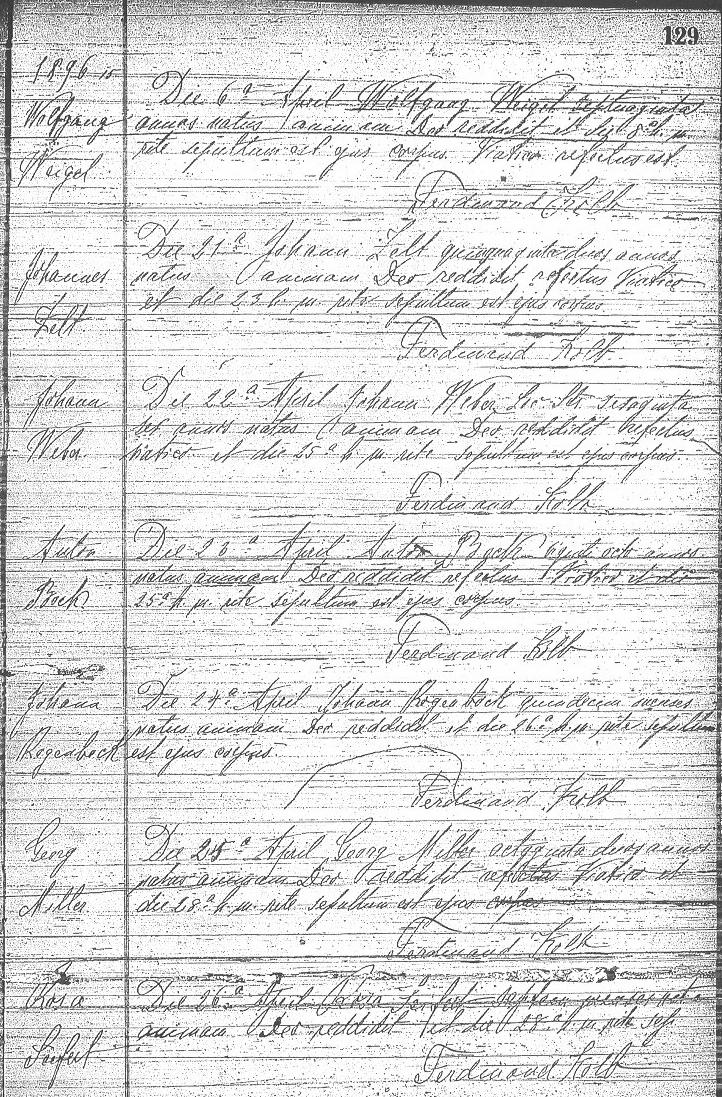 129
1896
Wolfgang
Weigel
Die 6ª April Wolfgang Weigel septuaginta
annos natus animam Deo reddidit et die 8 h. m.
rite sepultum est ejus corpus Viatico refectus est
Ferdinand Kolb
Johannes
Zelt
Die 21ª Johann Zelt quinquaginta duos annos
natus animam Deo reddidit refectus Viatico
et die 23 h. m. rite sepultum est ejus corpus
Ferdinand Kolb
Johann
Weber
Die 22ª April Johann Weber sexaginta
sex annos natus animam Deo reddidit refectus
viatico et die 25ª h. m. rite sepultum est ejus corpus
Ferdinand Kolb
Anton
Bock
Die 23ª April Anton Bock octo annos
natus animam Deo reddidit refectus Viatico et die
25ª h. m. rite sepultum est ejus corpus
Ferdinand Kolb
Johann
Regenbock
Die 24ª April Johann Regenbock quindecim menses
natus animam Deo reddidit et die 26ª h. m. rite sepultum
est ejus corpus.
Ferdinand Kolb
Georg
Miller
Die 25ª April Georg Miller octoginta duos annos
natus animam Deo reddidit refectus Viatico et
die 28ª h. m. rite sepultum est ejus corpus
Ferdinand Kolb
Rosa
Seifert
Die 26ª April Rosa Seifert septem menses nata
animam Deo reddidit et die 28ª h. m. rite sep.
Ferdinand Kolb